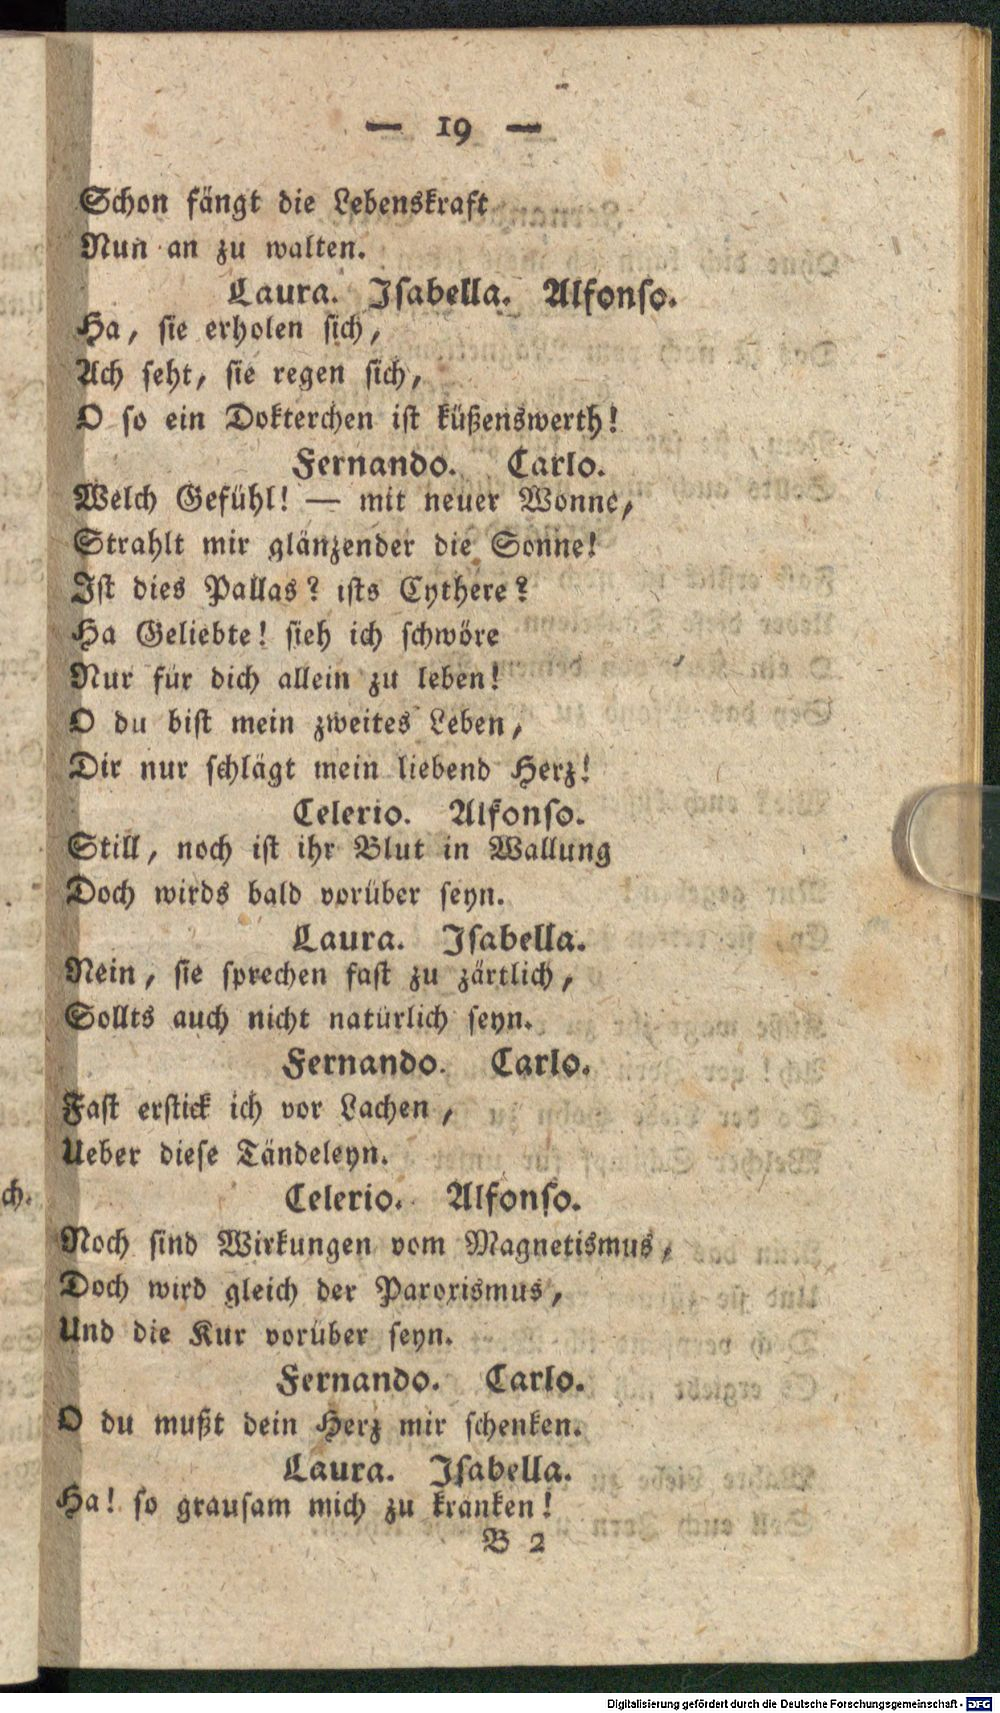 — 19 —
Schon fängt die Lebenskraft
Nun an zu walten.
Laura. Isabella. Alfonso.
Ha, sie erholen sich,
Ach seht, sie regen sich,
O so ein Dokterchen ist küßenswerth!
Fernando. Carlo.
Welch Gefühl! — mit neuer Wonne,
Strahlt mir glänzender die Sonne!
Ist dies Pallas? ists Cythere?
Ha Geliebte! sieh ich schwöre
Nur für dich allein zu leben!
O du bist mein zweites Leben,
Dir nur schlägt mein liebend Herz!
Celerio. Alfonso.
Still, noch ist ihr Blut in Wallung
Doch wirds bald vorüber seyn.
Laura. Isabella.
Nein, sie sprechen fast zu zärtlich,
Sollts auch nicht natürlich seyn.
Fernando. Carlo.
Fast erstick ich vor Lachen,
Ueber diese Tändeleyn.
ch.
Celerio. Alfonso.
Noch sind Wirkungen vom Magnetismus,
Doch wird gleich der Paroxismus,
Und die Kur vorüber seyn.
Fernando. Carlo.
O du mußt dein Herz mir schenken.
Laura. Isabella.
Ha! so grausam mich zu kränken!
B 2
Digitalisierung gefördert durch die Deutsche Forschungsgemeinschaft - DFG